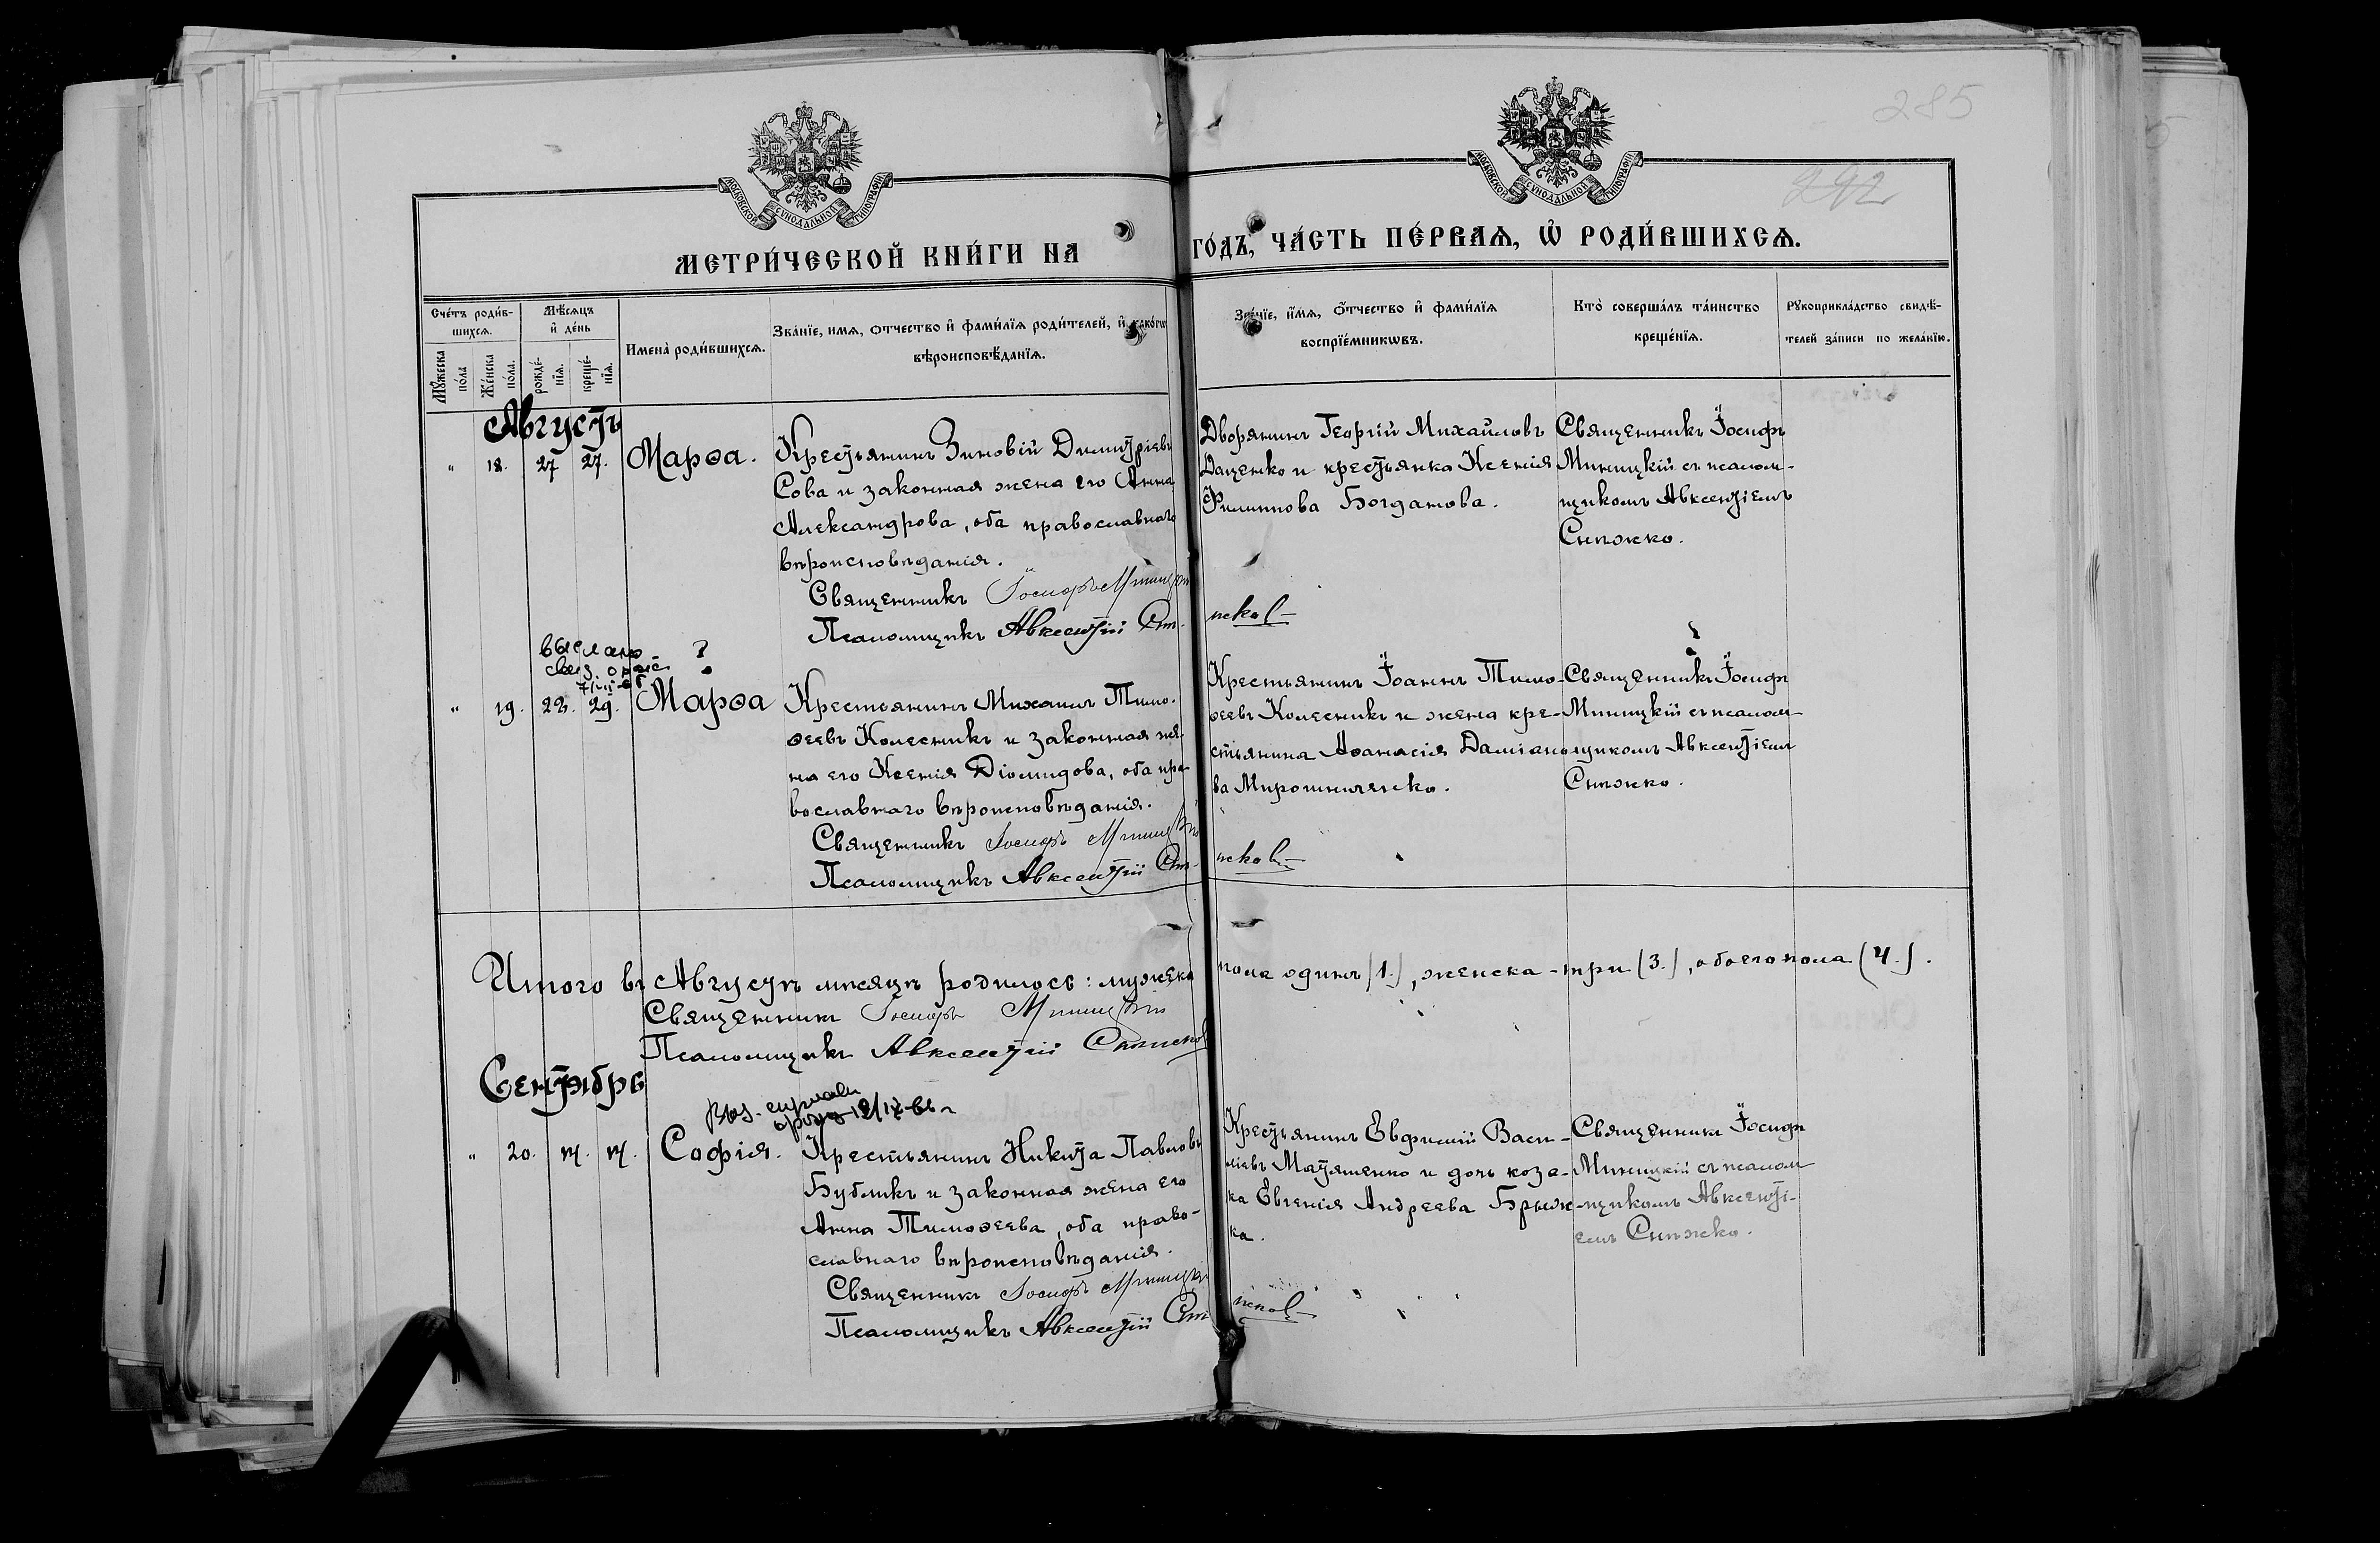 285
292
МОСКОВСКОЙ СѴНОДАЛЬНОЙ ТИПОГРАФІИ
МОСКОВСКОЙ СѴНОДАЛЬНОЙ ТИПОГРАФІИ
МЕТРИ́ЧЕСКОЙ КНИ́ГИ НА ГО́ДЪ, ЧА́СТЬ ПЕ́РВАѦ, Ѡ҆ РОДИ́ВШИХСѦ.
Сче́тъ роди́в-
шихсѧ.
Мꙋ́жеска по́ла
Же́нска по́ла.
Мѣ́сѧцъ и҆ де́нь
рожде́-
нїѧ.
креще́-
нїѧ.
Имена̀ роди́вшихсѧ.
Зва́нїе, имѧ, ѻтчество и҆ фами́лїѧ роди́телей, и҆ како́гѡ
вѣроисповѣ́данїѧ.
Зва́нїе, и҆́мѧ, ѻ҆́тчество и҆ фами́лїѧ
воспрїе́мникѡвъ.
Кто̀ соверша́лъ та́инство
креще́нїѧ.
Рꙋкоприкла́дство свидѣ́-
телей за́писи по жела́нїю.
Августъ
" 18. 27 27. Марѳа.
Крестьянинъ Зиновій Димитріевъ
Сова и законная жена его Анна
Александрова, оба православнаго
вѣроисповѣданія.
Священникъ Іосифъ
Псаломщикъ Авксентій
Дворянинъ Георгій Михайловъ
Даценко и крестьянка Ксенія
Филиппова Богданова.
Священникъ Іосифъ
Миницкій съ псалом-
щикомъ Авксентіемъ
Снѣжко.
выслано
?
" 19. 22. 29. Марѳа
Крестьянинъ Михаилъ Тимо-
ѳеевъ Колесникъ и законная же-
на его Ксенія Діомидова, оба пра-
вославнаго вѣроисповѣданія.
Священникъ Іосифъ
Псаломщикъ Авксентій
Крестьянинъ Іоаннъ Тимо-
ѳеевъ Колесникъ и жена кре-
стьянина Аѳанасія Даміано-
ва Мирошниченко.
Священникъ Іосифъ
Миницкій съ псалом-
щикомъ Авксентіемъ
Снѣжко.
Итого въ Августѣ мѣсяцѣ родилось: мужска пола одинъ (1.), женска - три (3.), обоего пола (4.).
Священникъ Іосифъ
Псаломщикъ Авксентій
Сентябрь
" 20. 14. 14. Софія.
Крестьянинъ Никита Павловъ
Бубликъ и законная жена его
Анна Тимоѳеева, оба право-
славнаго вѣроисповѣданія.
Священникъ Іосифъ
Псаломщикъ Авксентій
Крестьянинъ Евфимій Васи-
ліевъ Матяшенко и дочь коза-
ка Евгенія Андреева Брыж-
ка.
Священникъ Іосифъ
Миницкій съ псалом-
щикомъ Авксенті-
емъ Снѣжко.